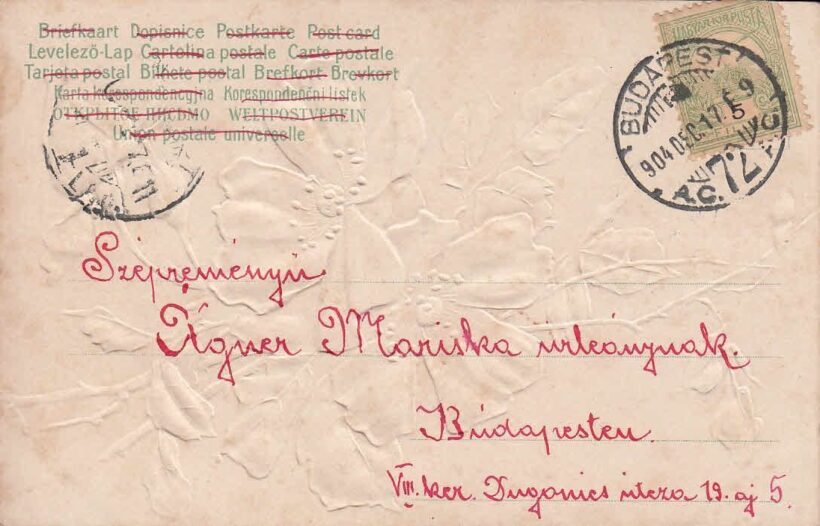 Briefkaart Dopisnice Postkarte Post card
Levelező-Lap Cartolina postale Carte postale
Tarjeta postal Bilhete postal Brefkort Brevkort
Karta korespondencyjna Korespondenční lístek
ОТКРЫТОЕ ПИСЬМО WELTPOSTVEREIN
Union postale universelle
MAGYAR KIR. POSTA
BUDAPEST
904 DEC. 17.
A.C. 72
Szépreményű
Ágner Mariska urleánynak.
Budapesten.
VIII. ker. Dugonics utcza 19. aj 5.